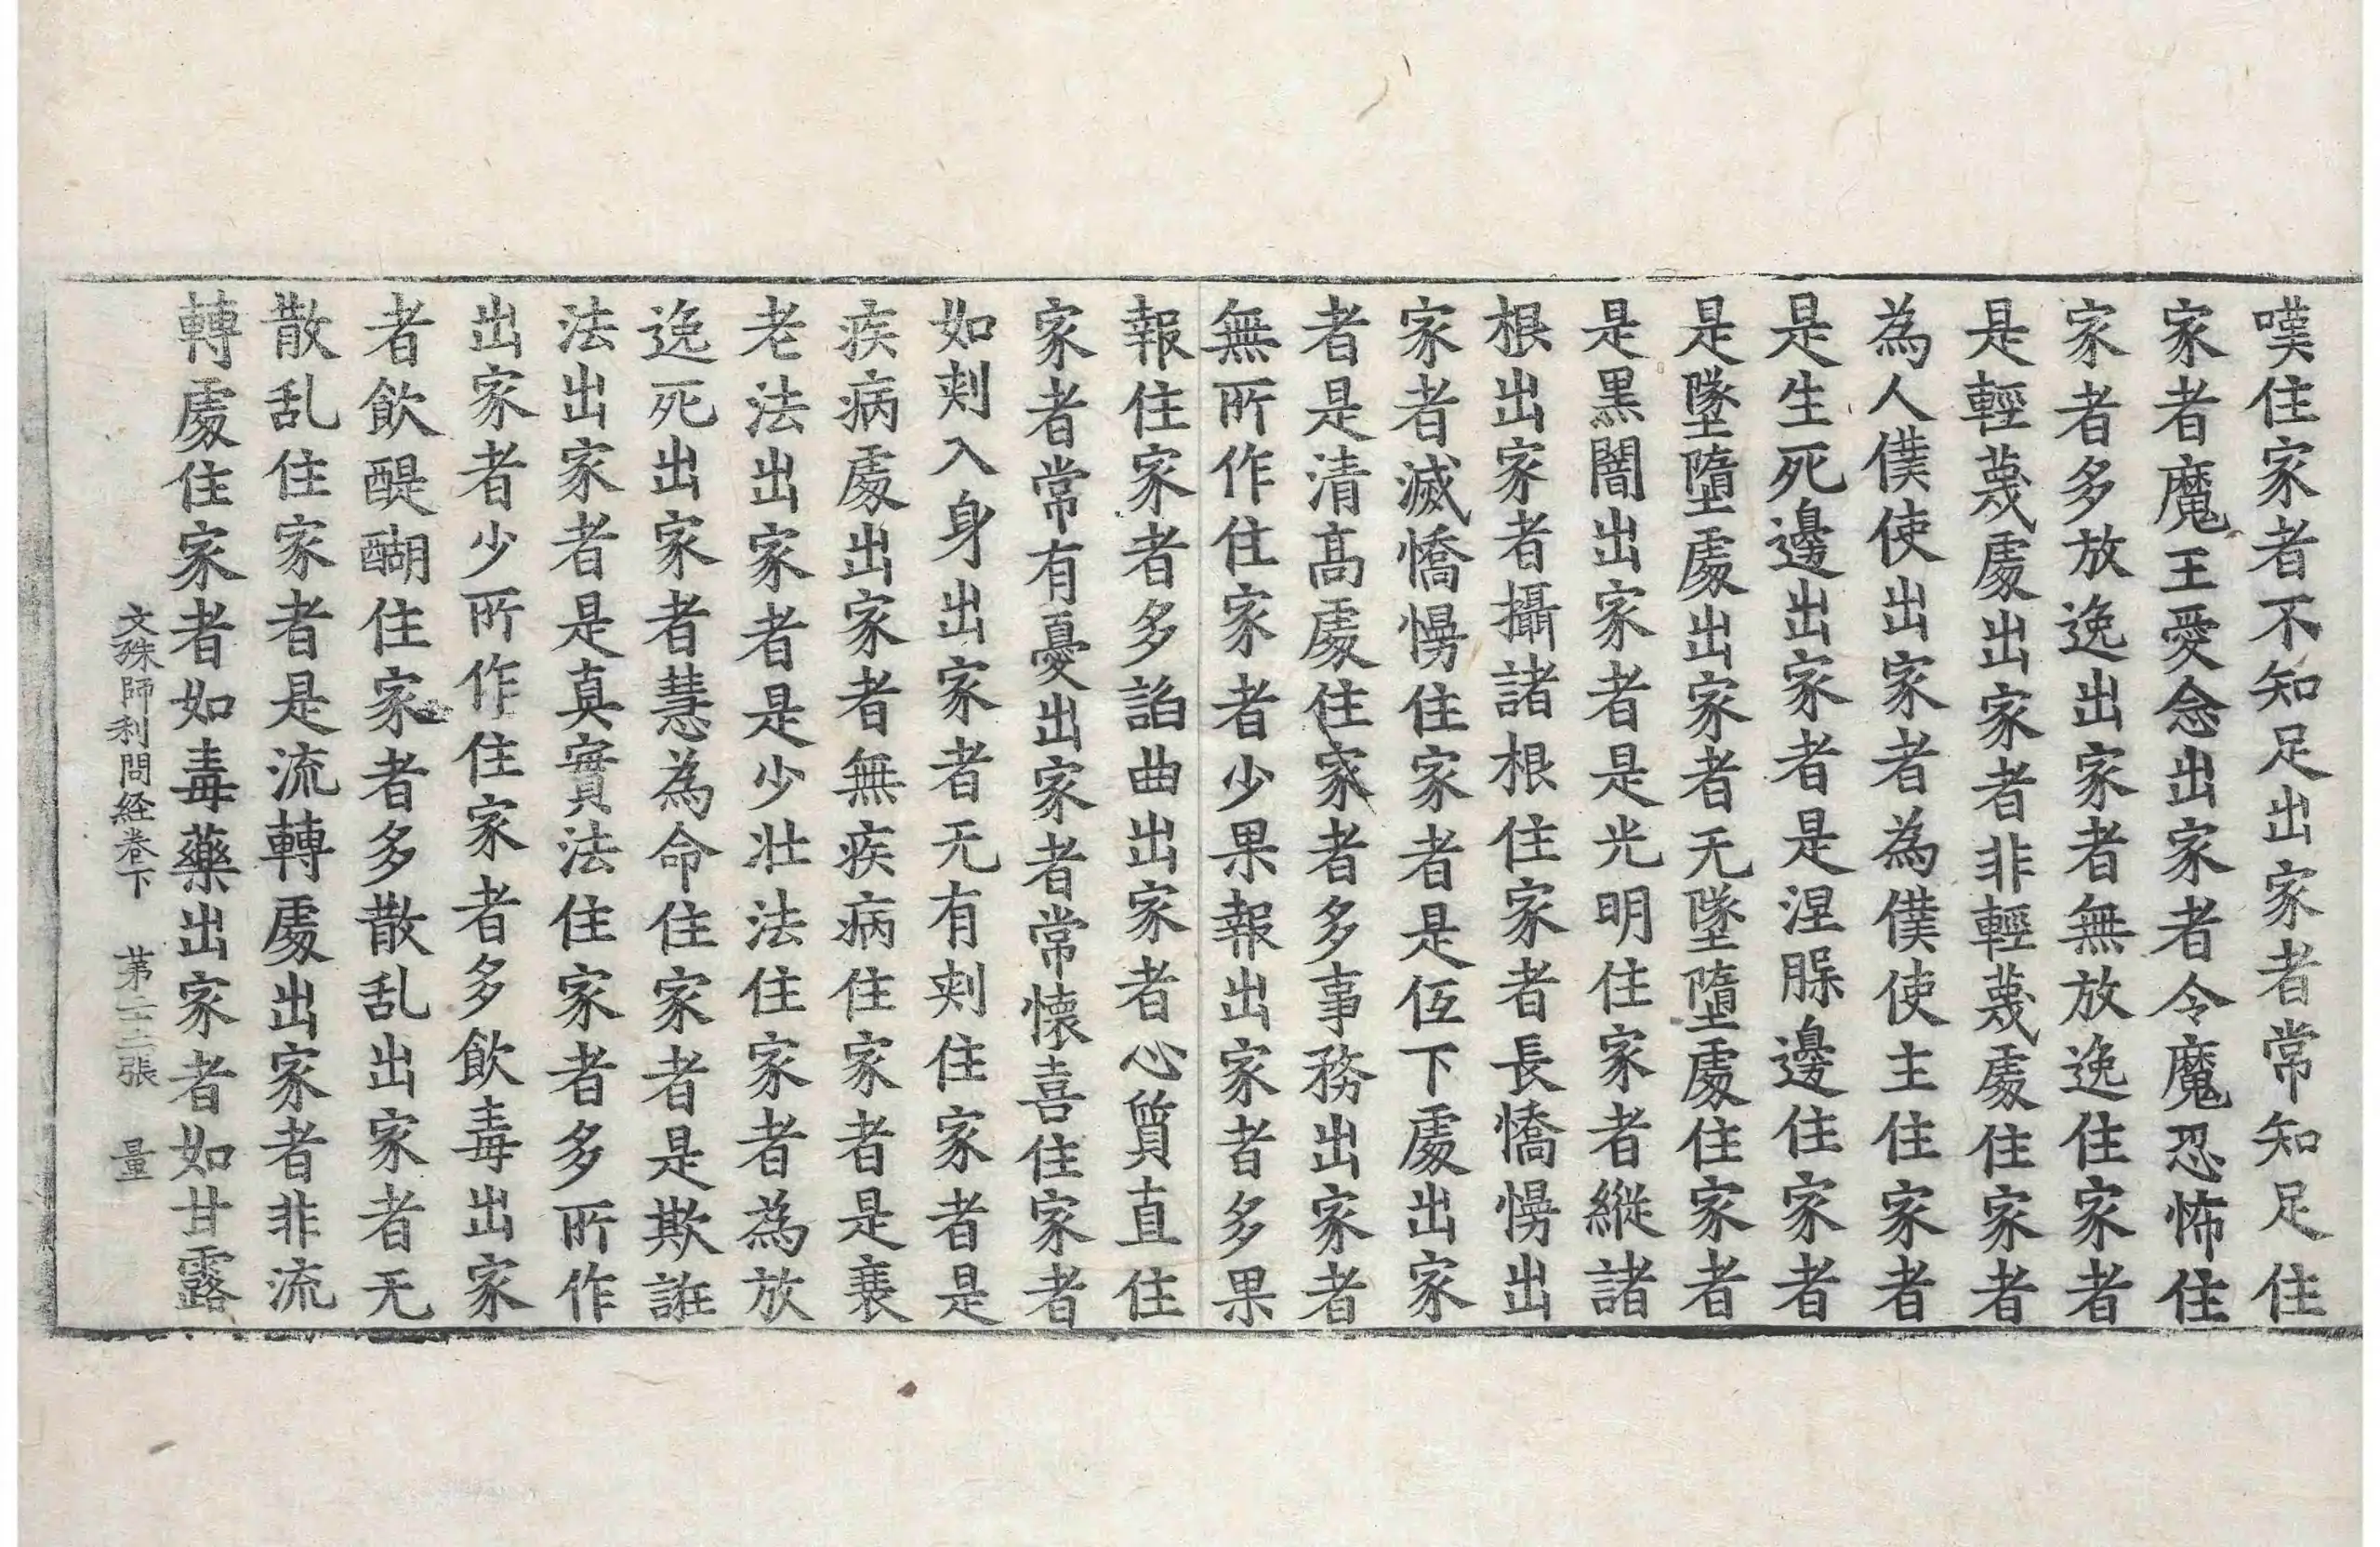 嘆住家者不知足出家者常知足住
家者魔王愛念出家者令魔恐怖住
家者多放逸出家者無放逸住家者
是輕蔑處出家者非輕蔑處住家者
為人僕使出家者為僕使主住家者
是生死邊出家者是涅脲邊住家者
是墜墮處出家者无墜墮處住家者
是黒闇出家者是光明住家者縱諸
根出家者攝諸根住家者長憍慢出
家者滅憍慢住家者是仾下處出家
者是清髙處住家者多事務出家者
無所作住家者少果報出家者多果
報住家者多謟曲出家者心質直住
家者常有憂出家者常懐喜住家者
如刾入身出家者无有刾住家者是
疾病處出家者無疾病住家者是衰
老法出家者是少壯法住家者為放
逸死出家者慧為命住家者是欺誑
法出家者是真實法住家者多所作
出家者少所作住家者多飲毒出家
者飲醍醐住家者多散乱出家者无
散乱住家者是流轉處出家者非流
轉處住家者如毒藥出家者如甘露
文殊師利問経卷下 第二十三張 量